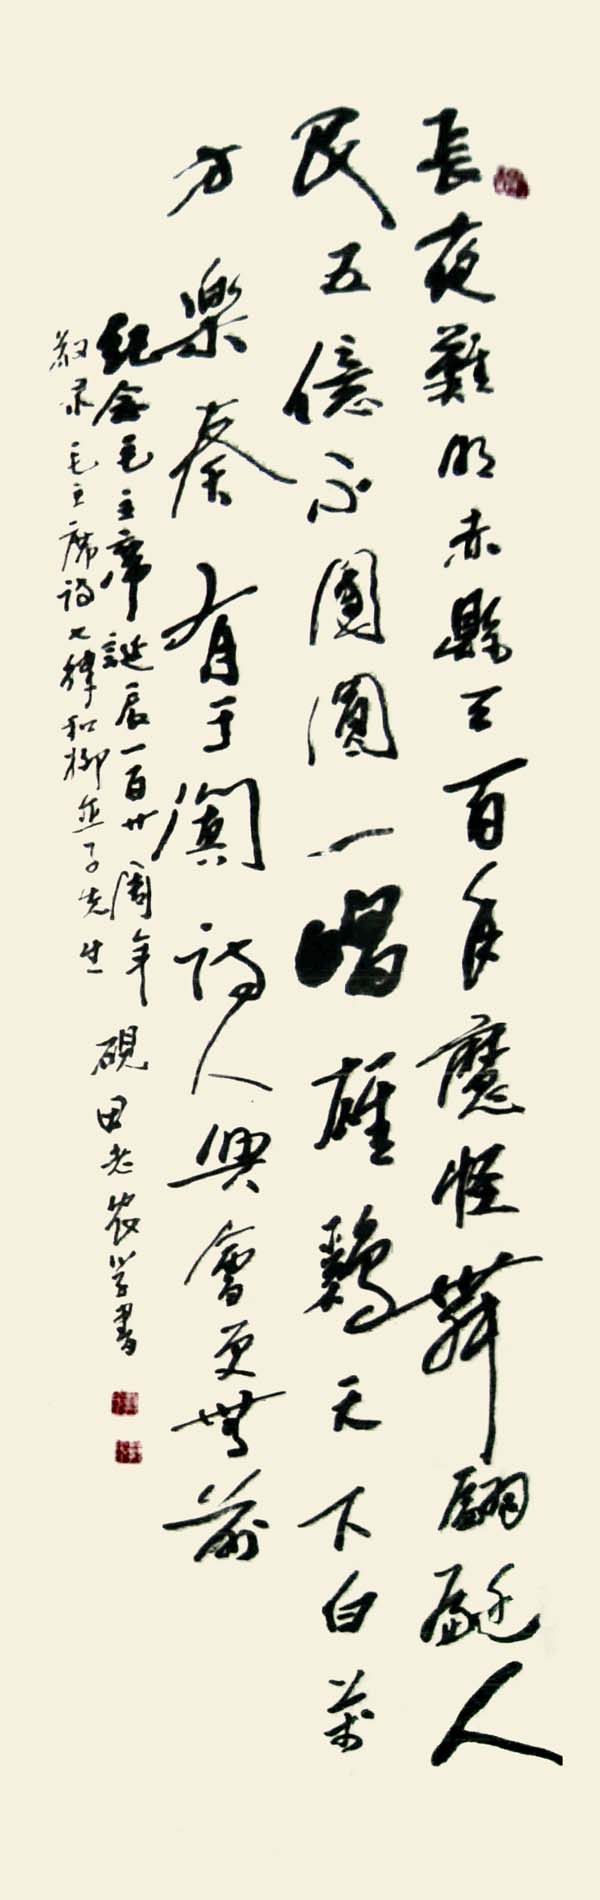 長夜難明赤縣天百年魔怪舞翩躚人
民五億不團圓一唱雄鷄天下白萬
方樂奏有于闐詩人興會更無前
紀念毛主席誕辰一百廿周年
敬录毛主席詩七律和柳亞子先生
硯田老农学書